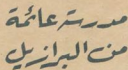 مدرسة عائمة
من البرازيل